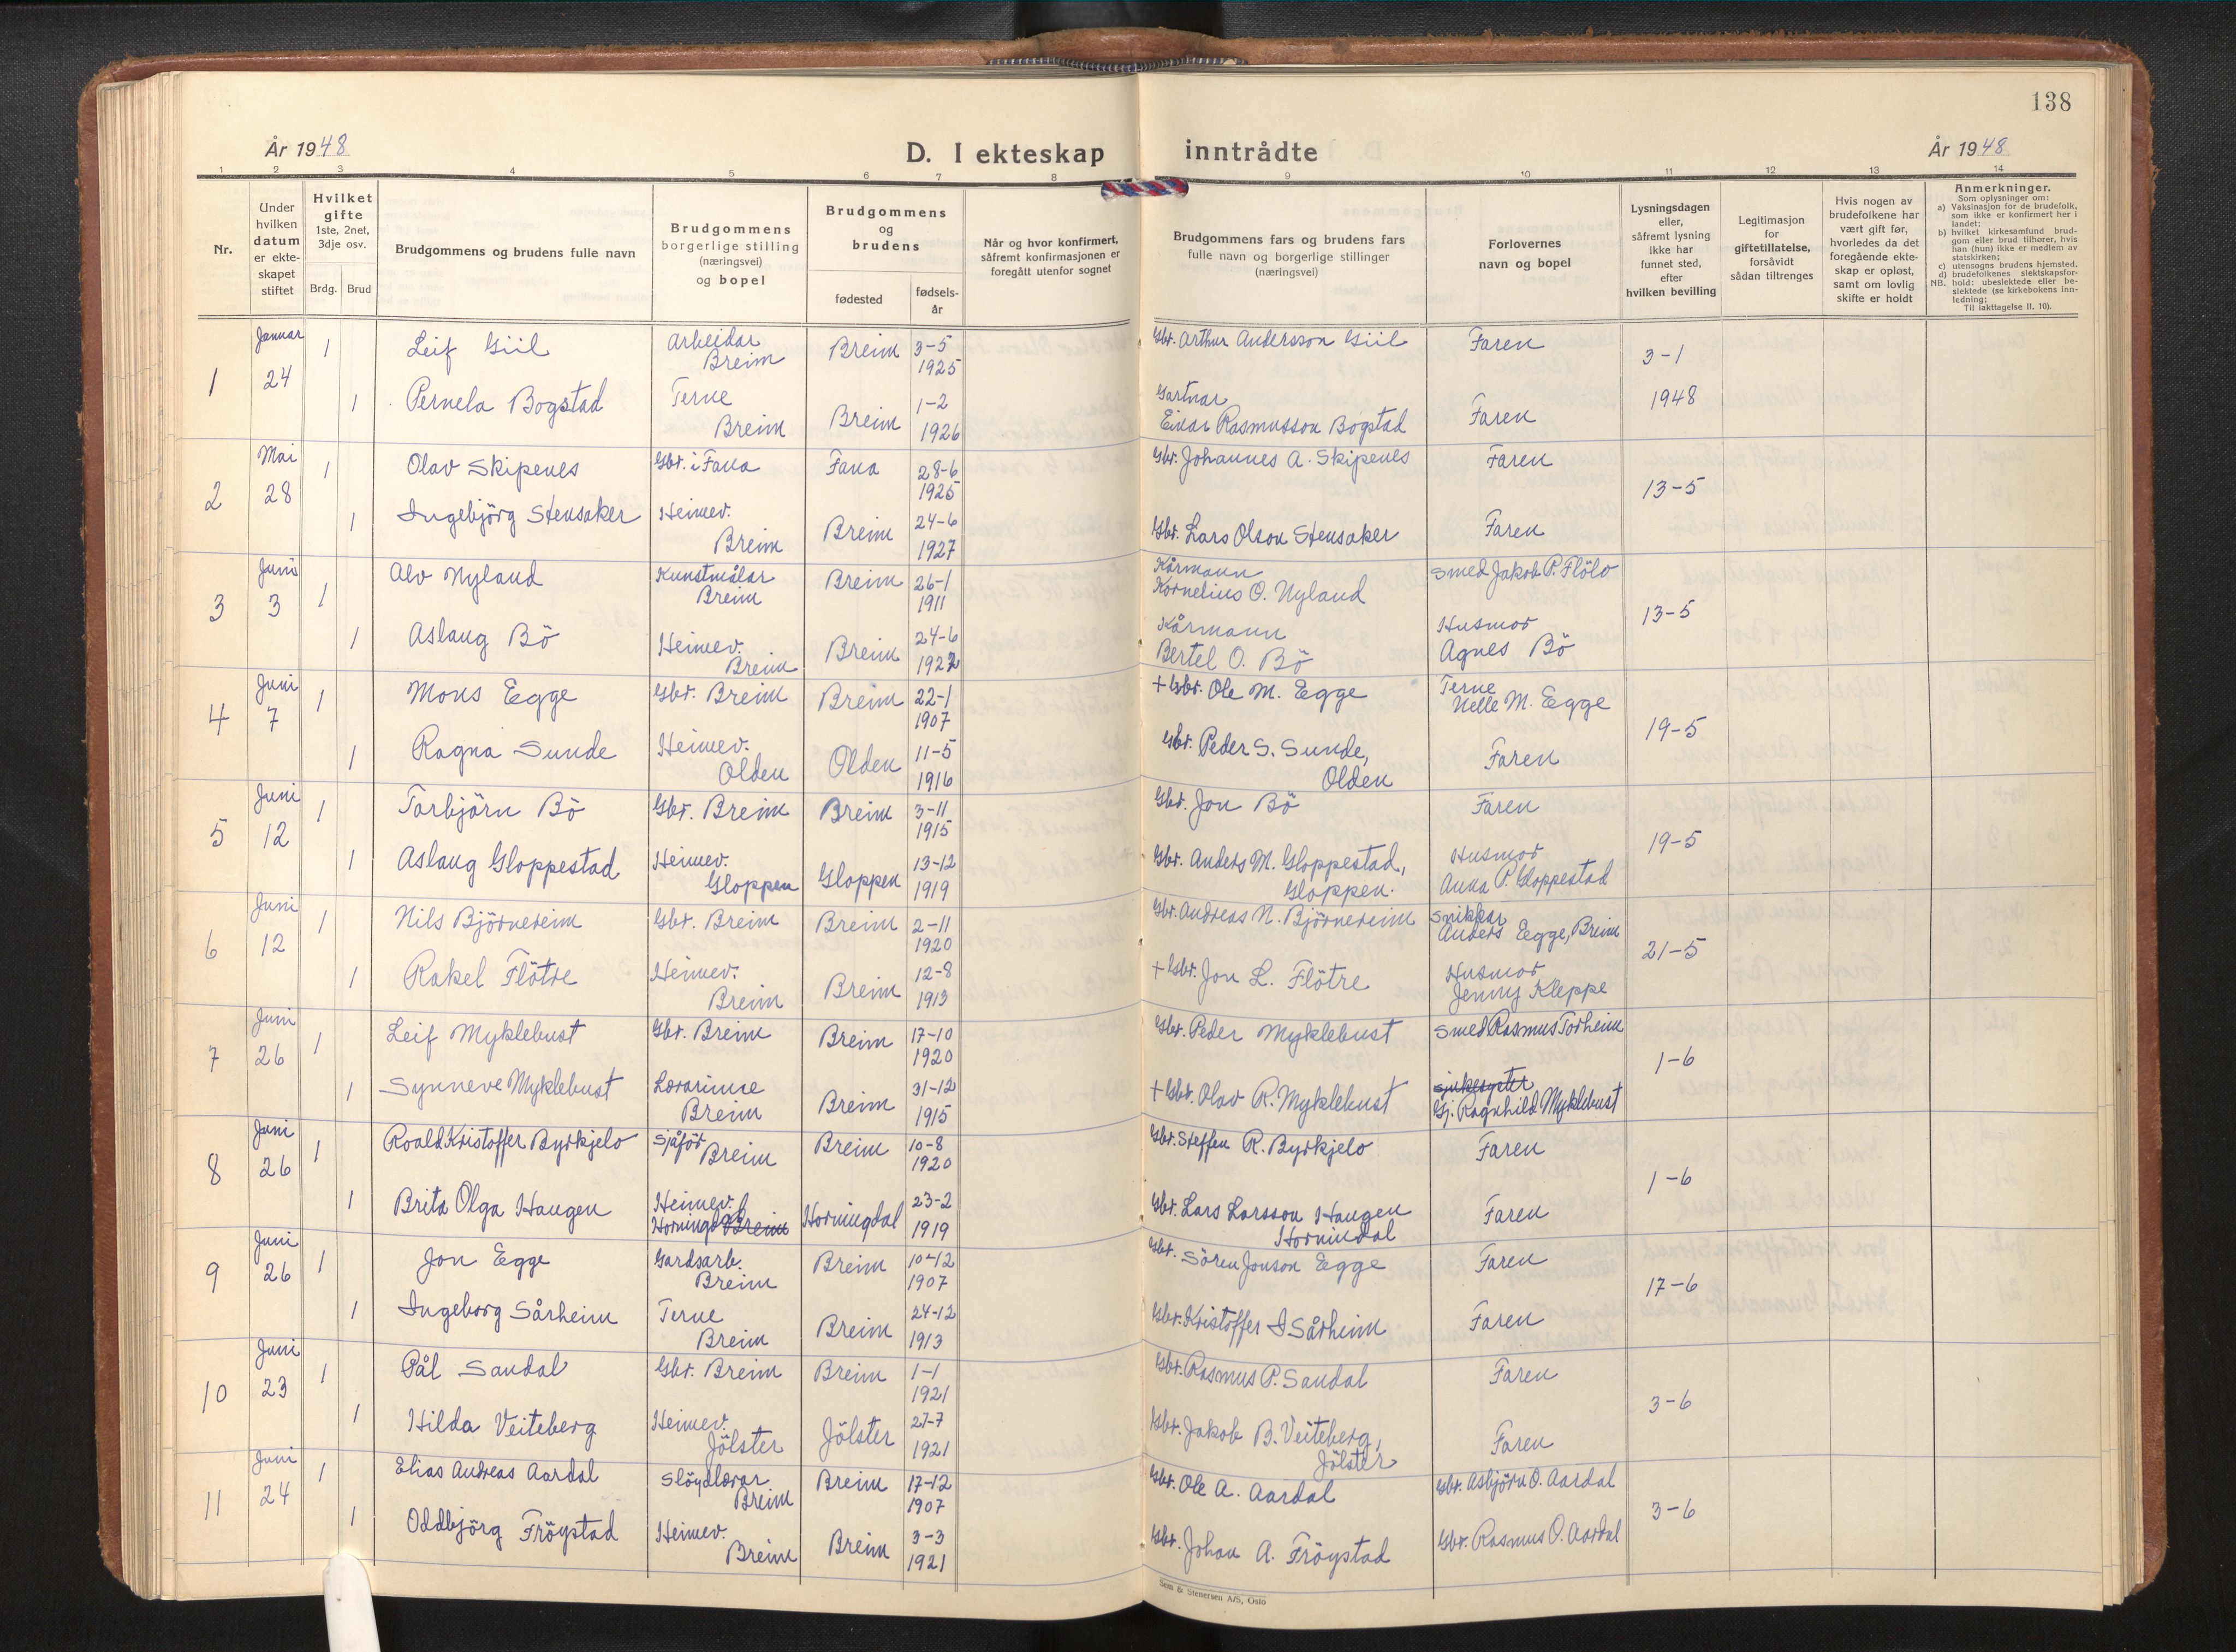 138
År 1948
D. I ekteskap inntrådte
År 1948
1 2 3 4 5 6 7 8 9 10 11 12 13 14
Nr.
Under hvilken datum er ekte-skapet stiftet
Hvilket gifte 1ste, 2net, 3dje osv.
Brdg. Brud
Brudgommens og brudens fulle navn
Brudgommens borgerlige stilling (næringsvei) og bopel
Brudgommens og brudens
fødested
fødsels-år
Når og hvor konfirmert, såfremt konfirmasjonen er foregått utenfor sognet
Brudgommens fars og brudens fars fulle navn og borgerlige stillinger (næringsvei)
Forlovernes navn og bopel
Lysningsdagen eller, såfremt lysning ikke har funnet sted, efter hvilken bevilling
Legitimasjon for giftetillatelse, forsåvidt sådan tiltrenges
Hvis nogen av brudefolkene har vært gift før, hvorledes da det foregående ekte-skap er opløst, samt om lovlig skifte er holdt
Anmerkninger.
Som oplysninger om:
a) Vaksinasjon for de brudefolk, som ikke er konfirmert her i landet;
b) hvilket kirkesamfund brud-gom eller brud tilhører, hvis han (hun) ikke er medlem av statskirken;
c) utensogns brudens hjemsted,
d) brudefolkenes slektskapsfor-
NB. hold: ubeslektede eller be-slektede (se kirkebokens inn-ledning;
Til iakttagelse II. 10).
1 Januar 24 1 Leif Giil Arbeidar Breim Breim 3-5 1925 Gbr. Arthur Andersson Giil Faren 3-1 1948
1 Pernela Bogstad Terne Breim Breim 1-2 1926 Gartnar Einar Rasmusson Bogstad Faren
2 Mai 28 1 Olav Skipenes Gbr. i Fana Fana 28-6 1925 Gbr. Johannes A. Skipenes Faren 13-5
1 Ingebjörg Stensaker Heimev. Breim Breim 24-6 1927 Gbr. Lars Olson Stensaker Faren
3 Juni 3 1 Alv Nyland Kunstmålar Breim Breim 26-1 1911 Kårmann Kornelius O. Nyland Smed Jakob P. Flölo 13-5
1 Aslaug Bö Heimev. Breim Breim 24-6 1922 Kårmann Bertel O. Bö Husmor Agnes Bö
4 Juni 7 1 Mons Egge Gbr. Breim Breim 22-1 1907 + Gbr. Ole M. Egge Terne Nelle M. Egge 19-5
1 Ragna Sunde Heimev. Olden Olden 11-5 1916 Gbr. Peder S. Sunde, Olden Faren
5 Juni 12 1 Torbjörn Bö Gbr. Breim Breim 3-11 1915 Gbr. Jon Bö Faren 19-5
1 Aslaug Gloppestad Heimev. Gloppen Gloppen 13-12 1919 Gbr. Anders M. Gloppestad, Gloppen. Husmor Anna P. Gloppestad
6 Juni 12 1 Nils Björnereim Gbr. Breim Breim 2-11 1920 Gbr. Andreas N. Björnereim Snikkar Anders Egge, Breim 21-5
1 Rakel Flötre Heimev. Breim Breim 12-8 1913 + Gbr. Jon L. Flötre Husmor Jenny Kleppe
7 Juni 26 1 Leif Myklebust Gbr. Breim Breim 17-10 1920 Gbr. Peder Myklebust Smed Rasmus Torheim 1-6
1 Synneve Myklebust Lærarinne Breim Breim 31-12 1915 + Gbr. Olav R. Myklebust Sjukesyster Gj. Ragnhild Myklebust
8 Juni 26 1 Roald Kristoffer Byrkjelo Sjåför Breim Breim 10-8 1920 Gbr. Steffen R. Byrkjelo Faren 1-6
1 Brita Olga Haugen Heimev. Horningd. Breim Horningdal 23-2 1919 Gbr. Lars Larsson Haugen Hornindal Faren
9 Juni 26 1 Jon Egge Gardsarb. Breim Breim 10-12 1907 Gbr. Sören Jonson Egge Faren 17-6
1 Ingeborg Sårheim Terne Breim Breim 24-12 1913 Gbr. Kristoffer I Sårheim Faren
10 Juni 23 1 Pål Sandal Gbr. Breim Breim 1-1 1921 Gbr. Rasmus P. Sandal Faren 3-6
1 Hilda Veiteberg Heimev. Jölster Jölster 27-7 1921 Gbr. Jakob B. Veiteberg, Jölster Faren
11 Juni 24 1 Elias Andreas Aardal Slöydlærar Breim Breim 17-12 1907 Gbr. Ole A. Aardal Gbr. Asbjörn O. Aardal 3-6
1 Oddbjörg Fröystad Heimev. Breim Breim 3-3 1921 Gbr. Johan A. Fröystad Gbr. Rasmus O. Aardal
Sem & Stenersen A/S, Oslo